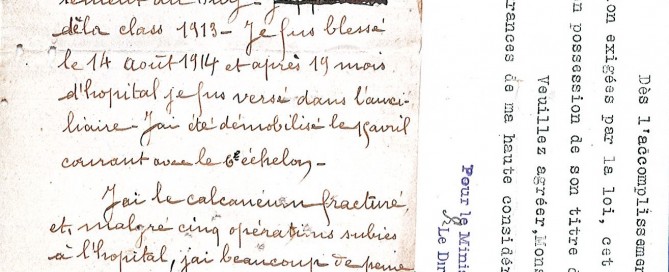 de la class 1913 - Je fus blessé
le 14 août 1914 et après 19 mois
d'hopital je fus versé dans l'auxi-
liaire - J'ai été démobilisé le 15 avril
courant avec le 6e échelon -
J'ai le calcanéum fracturé,
et, malgré cinq opérations subies
à l'hopital, j'ai beaucoup de peine
Dès l'accomplissemen
on exigées par la loi, cet
n possession de son titre d
Veuillez agréer, Mons
rances de ma haute considér
Pour le Minis
Le Dir